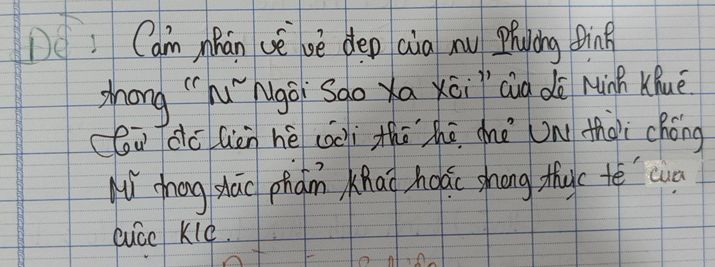 Đề : Cảm nhận về vẻ đẹp của nv Phương Định
trong "N~ Ngôi Sao Xa Xôi" của Lê Minh Khuê.
Từ đó liên hệ với thế hệ trẻ VN thời chống
Mĩ trong tác phẩm khác hoặc trong thực tế của
cuộc K/C.